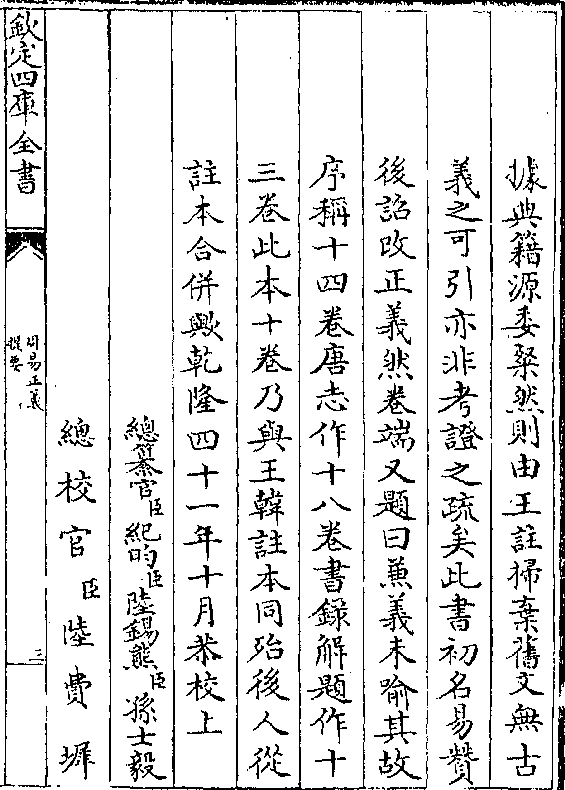 據典籍源委粲然則由王註掃棄舊文無古
義之可引亦非考證之疏矣此書初名易贊
後詔改正義然卷端又題曰兼義未喻其故
序稱十四卷唐志作十八卷書録解題作十
三卷此本十卷乃與王韓註本同殆後人從
註本合併歟乾隆四十一年十月恭校上
總纂官臣紀昀臣陸錫熊臣孫士毅
總校官臣陸費墀
欽定四庫全書
周易正義
提要
三